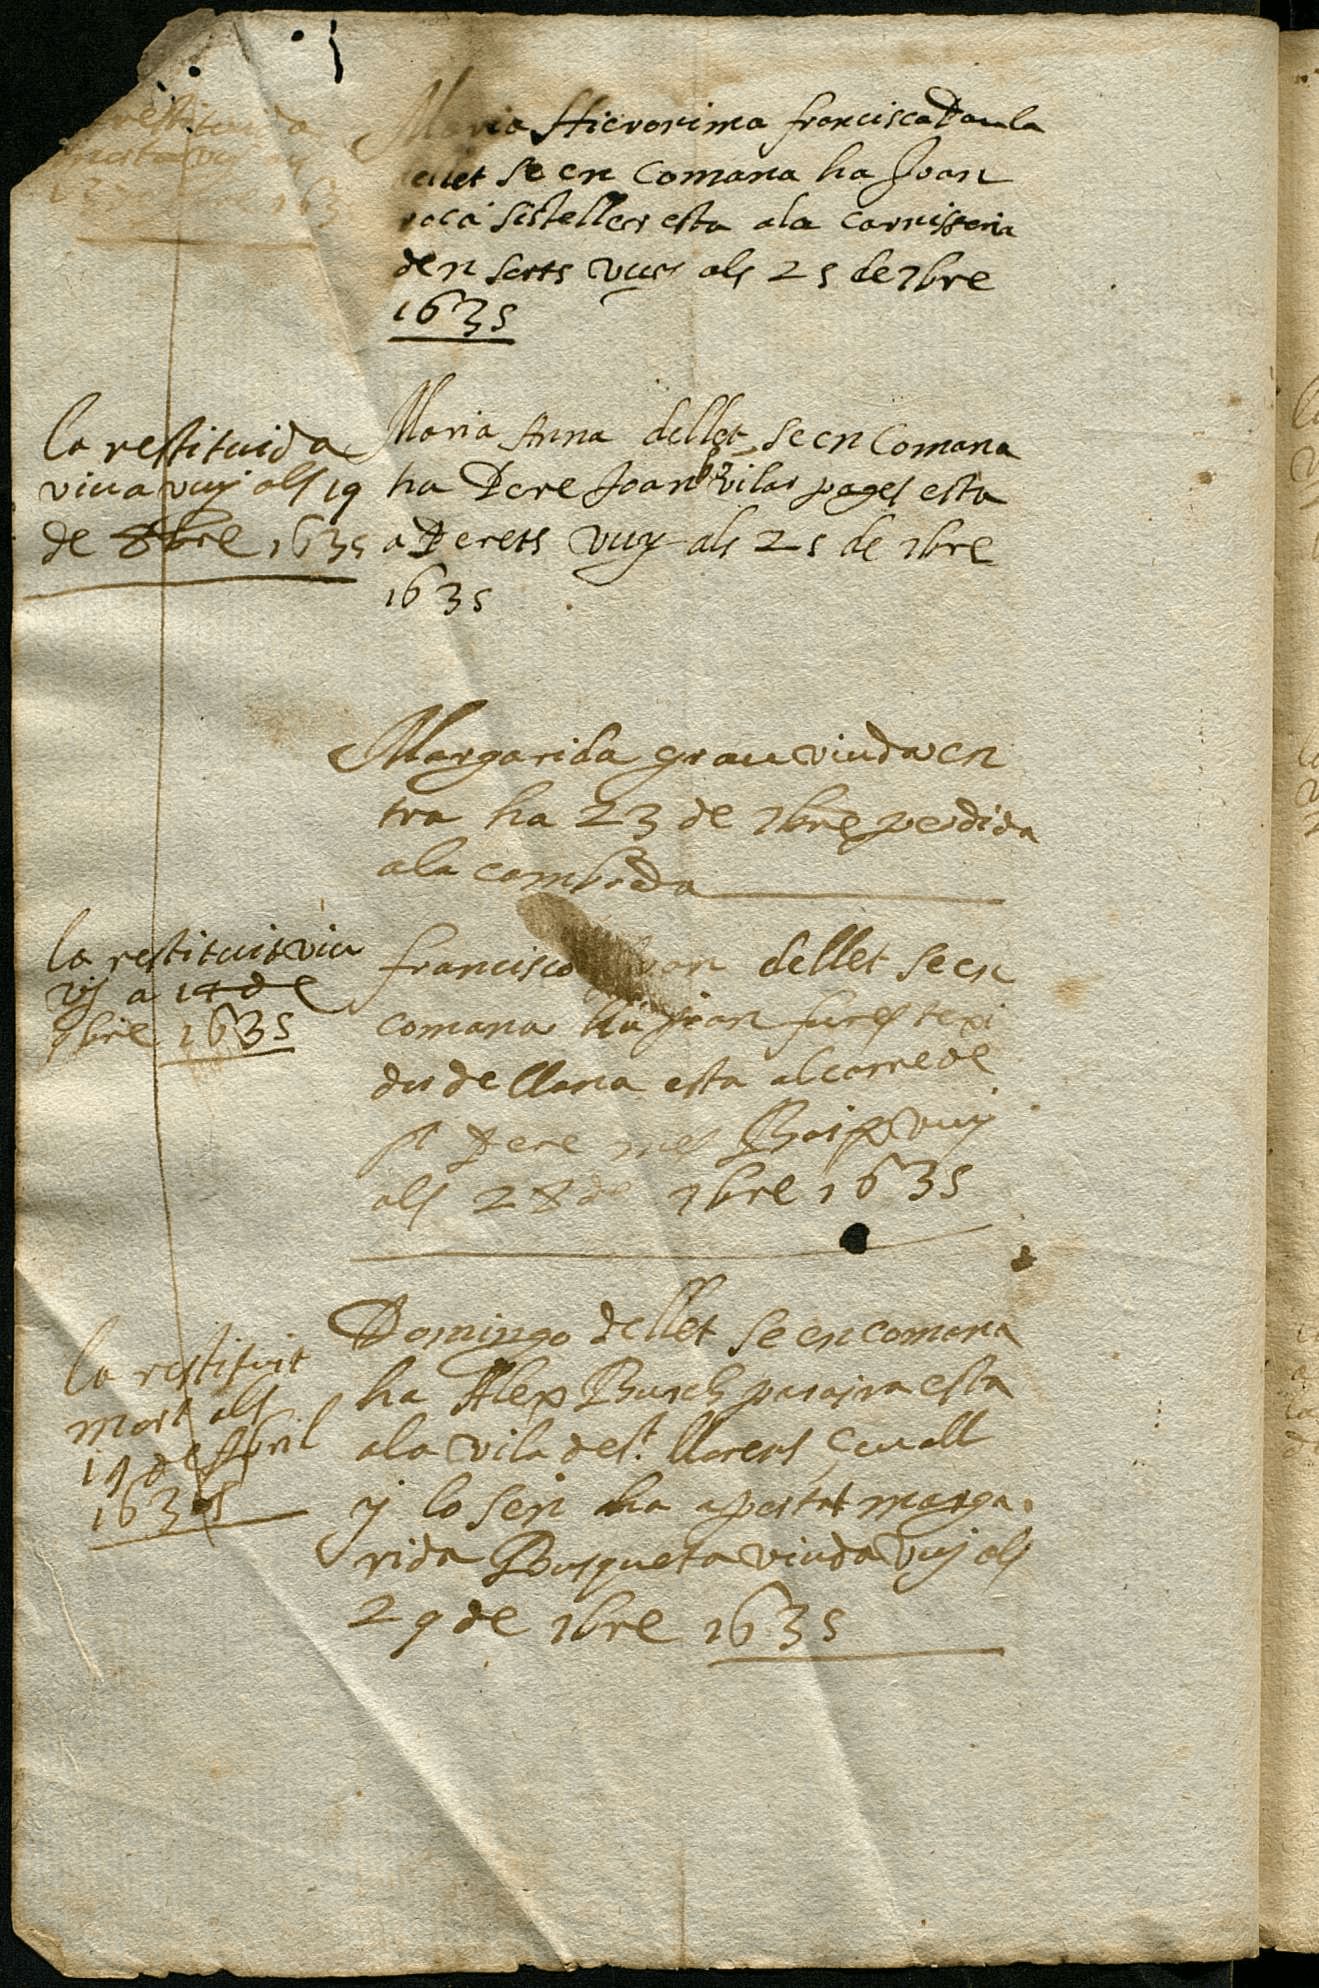 restituida
Maria Hieronima francisca Paula
dellet se en Comana ha Joan
roca sisteller esta a la carnisseria
den sorts vuy als 25 de 7bre
1635
la restituida
viua vuy als 19
de 8bre 1635
Maria Anna dellet se en Comana
ha Pere Joan vilar pages esta
a Perets vuy als 25 de 7bre
1635
Margarida grau viuda en
tra ha 23 de 7bre perdida
a la cambrada
la restituit viu
vy a 14 de
9bre 1635
francisco Joan dellet se en
comana ha Joan texi
dor de llana esta al carre de
st Pere mes Baix vuy
als 28 de 7bre 1635
la restituit
mort als
19 de Abril
1635
Domingo dellet se en comana
ha Alex Bosch esta
a la vila de st. llorens çauall
y lo sen ha aportat marga
rida Busqueta viuda vuy als
29 de 7bre 1635